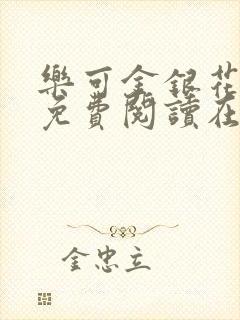 樂可金銀花
免費閱讀在
金忠立